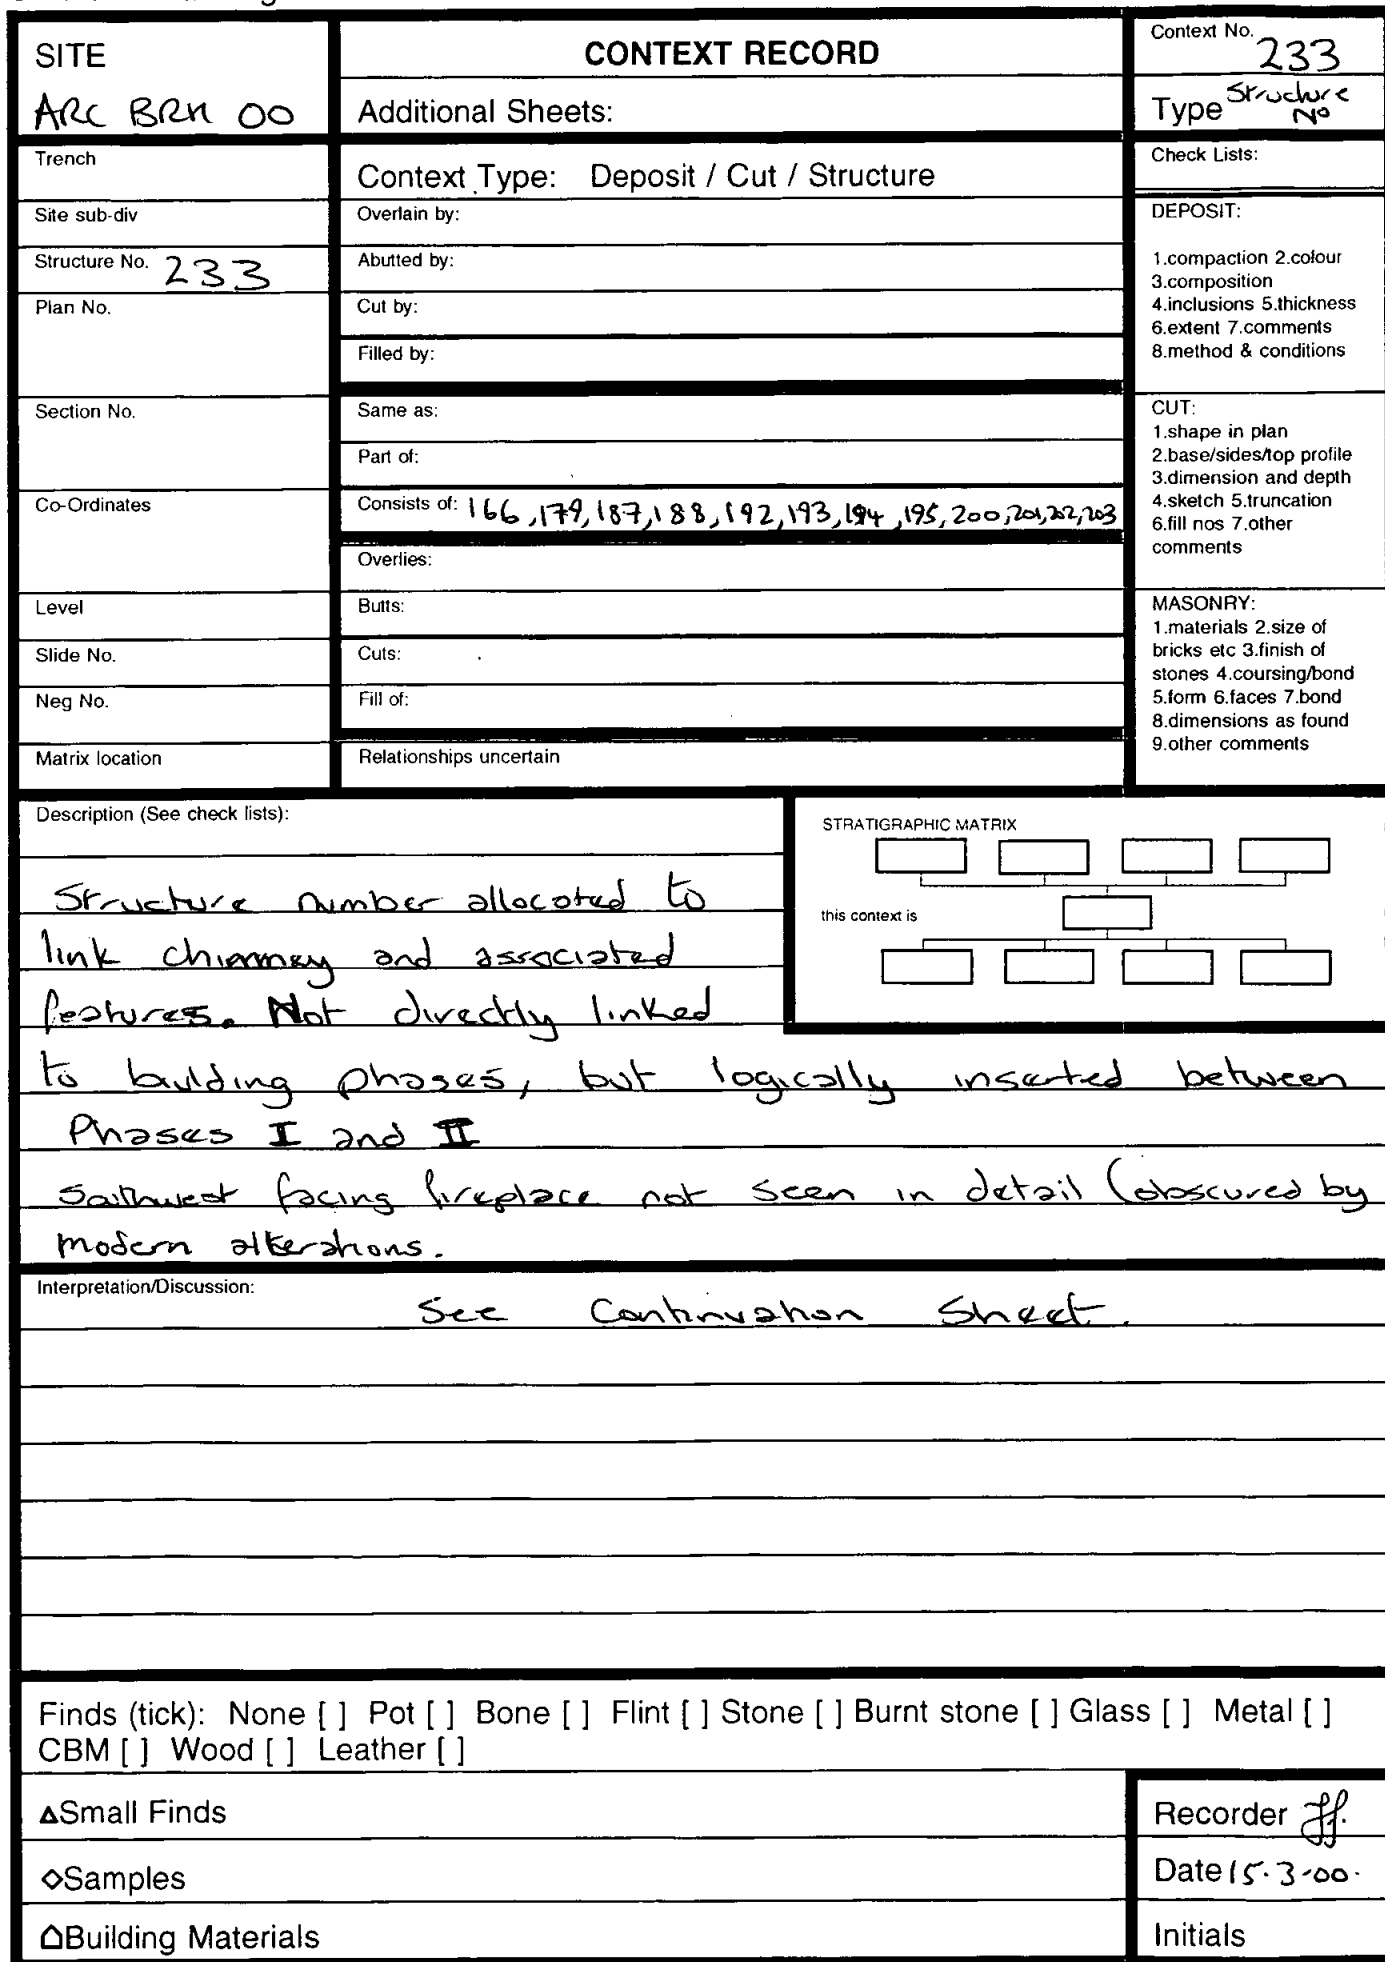 SITE
ARC BRH 00
CONTEXT RECORD
Additional Sheets:
Context No. 233
Type Structure No
Trench
Site sub-div
Structure No. 233
Plan No.
Section No.
Co-Ordinates
Level
Slide No.
Neg No.
Matrix location
Context Type: Deposit / Cut / Structure
Overlain by:
Abutted by:
Cut by:
Filled by:
Same as:
Part of:
Consists of: 166, 179, 187, 188, 192, 193, 194, 195, 200, 201, 202, 203
Overlies:
Butts:
Cuts:
Fill of:
Relationships uncertain
Check Lists:
DEPOSIT:
1.compaction 2.colour
3.composition
4.inclusions 5.thickness
6.extent 7.comments
8.method & conditions
CUT:
1.shape in plan
2.base/sides/top profile
3.dimension and depth
4.sketch 5.truncation
6.fill nos 7.other
comments
MASONRY:
1.materials 2.size of
bricks etc 3.finish of
stones 4.coursing/bond
5.form 6.faces 7.bond
8.dimensions as found
9.other comments
Description (See check lists):
STRATIGRAPHIC MATRIX
this context is
Structure number allocated to
link chimney and associated
features. Not directly linked
to building phases, but logically inserted between
Phases I and II
Southwest facing fireplace not seen in detail (obscured by
modern alterations.
Interpretation/Discussion:
See Continuation Sheet.
Finds (tick): None [ ] Pot [ ] Bone [ ] Flint [ ] Stone [ ] Burnt stone [ ] Glass [ ] Metal [ ]
CBM [ ] Wood [ ] Leather [ ]
Small Finds
Samples
Building Materials
Recorder
Date 15.3.00.
Initials